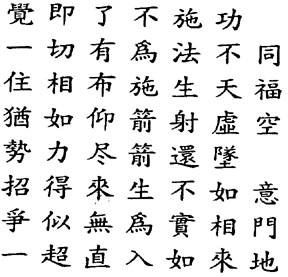 覺即了不施功
一切有為法不同
住相布施生天福
猶如仰箭射虛空
勢力尽箭還墜
招得來生不如意
爭似無為實相門
一超直入如來地